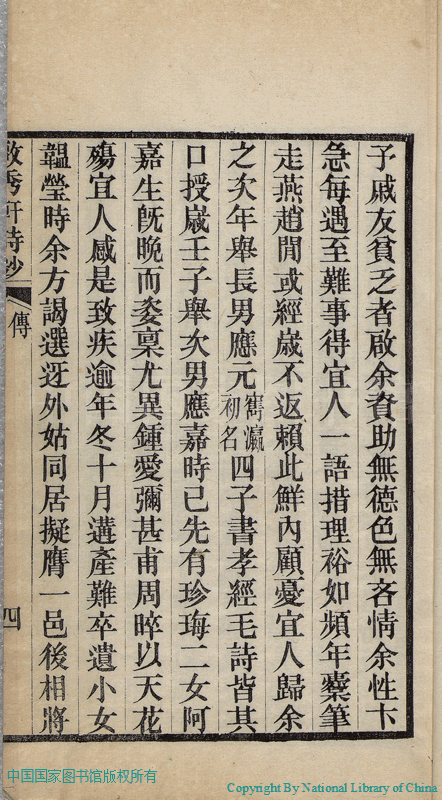 予戚友貧乏者啟余資助無德色無吝情余性卞
急每遇至難事得宜人一語措理裕如頻年槖筆
走燕趙閒或經歲不返賴此鮮內顧憂宜人歸余
之次年舉長男應元初名雋瀛四子書孝經毛詩皆其
口授歲壬子舉次男應嘉時已先有珍珻二女阿
嘉生旣晚而姿稟尤異鍾愛彌甚甫周晬以天花
殤宜人慼是致疾逾年冬十月遘產難卒遺小女
韞瑩時余方謁選迓外姑同居擬膺一邑後相將
秀軒詩鈔
傳
四
中国国家图书馆版权所有
Copyright By National Library of China